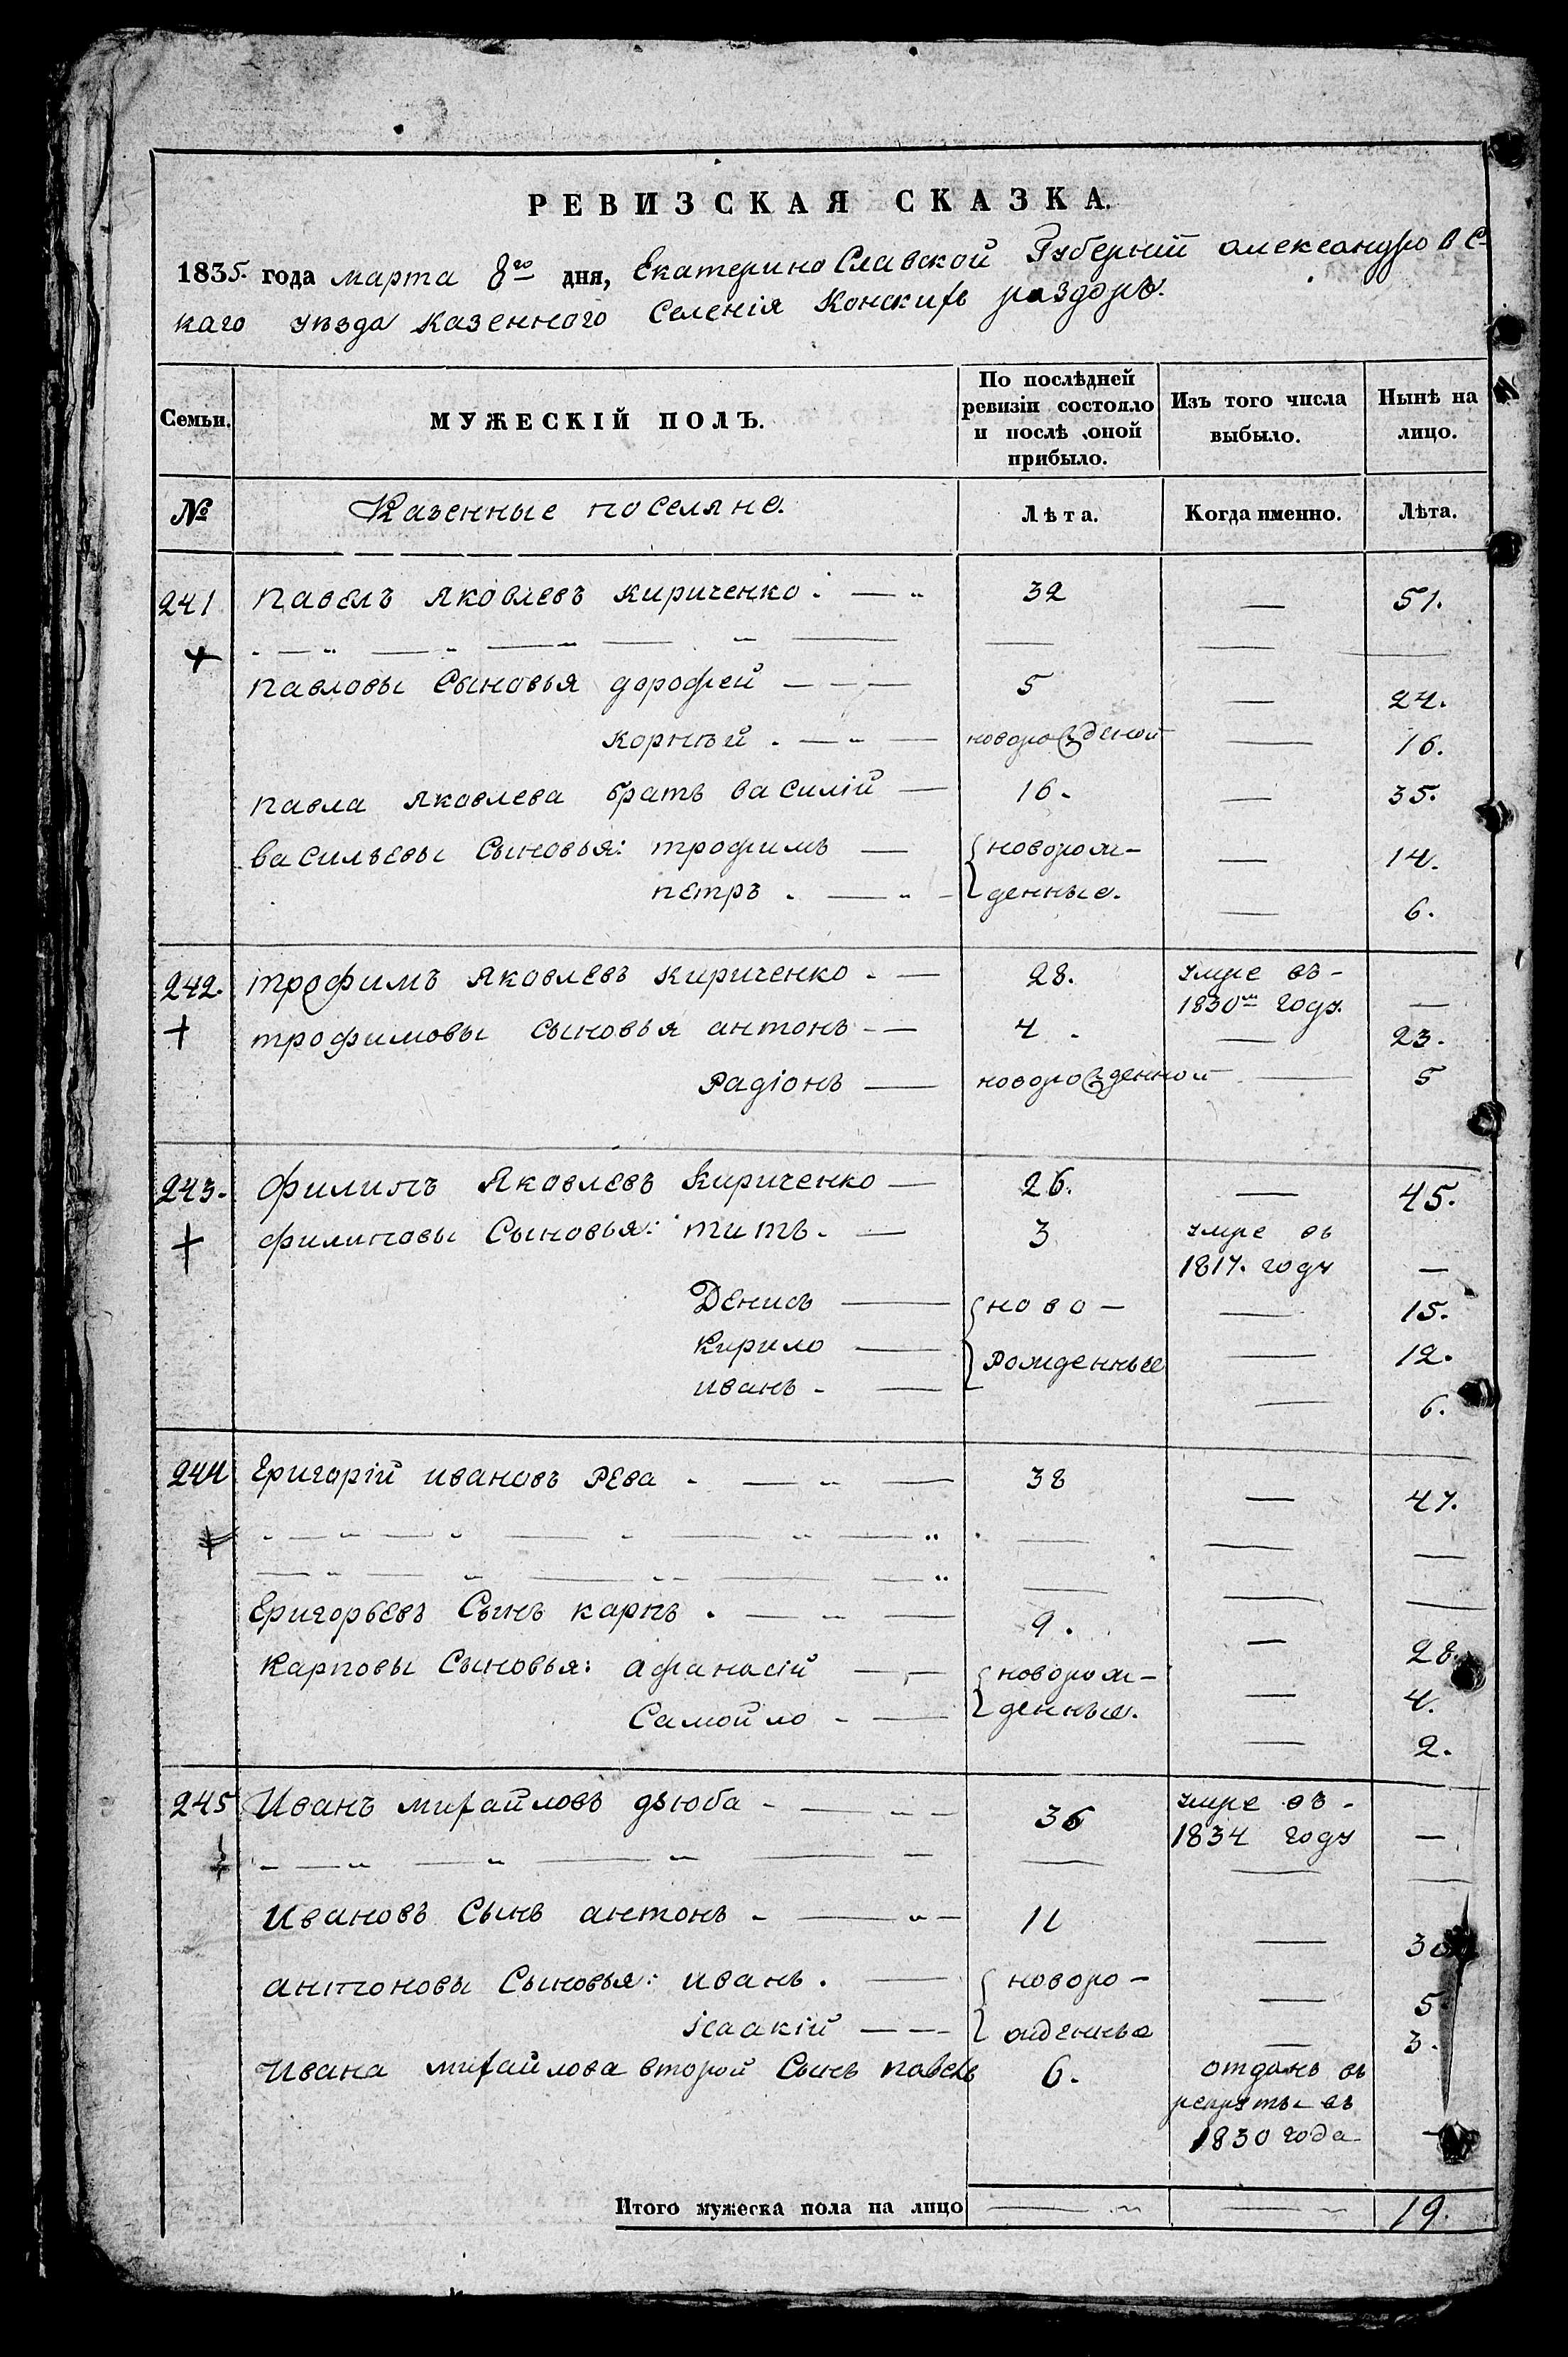 РЕВИЗСКАЯ СКАЗКА.
1835. года марта 8го дня, ЕкатериноСлавской Губерніи александровс-
каго уѣзда казенного Селенія Конскихъ раздоръ.
Семьи. МУЖЕСКІЙ ПОЛЪ. По послѣдней ревизіи состояло и послѣ оной прибыло. Изъ того числа выбыло. Нынѣ на лицо.
№ Казенные поселяне. Лѣта. Когда именно. Лѣта.
241 павелъ яковлевъ кириченко. — 32 — 51.
павловы Сыновья дорофей — 5 — 24.
корнѣй. — новорожденой — 16.
павла яковлева братъ василій — 16. — 35.
васильевы Сыновья: трофимъ — новорож- — 14.
петръ. — денные. — 6.
242. трофимъ яковлевъ кириченко. — 28. умре въ-
1830м году. —
трофимовы сыновья антонъ — 4. — 23.
Радіонъ — новорожденной — 5
243. филипъ яковлевъ кириченко — 26. — 45.
филиповы Сыновья: титъ. — 3 умре въ
1817. году —
Денисъ — ново- — 15.
кирило — рожденные — 12.
иванъ. — — 6.
244 Григорій ивановъ Рева — 38 — 47.
Григорьевъ Сынъ карпъ. — 9. — 28.
карповы Сыновья: афанасій — новорож- — 4.
Самойло — денные. — 2.
245 Иванъ михайловъ дзюба — 36 умре въ-
1834 году —
Ивановъ Сынъ антонъ — 11 — 30
антоновы Сыновья: иванъ. — новоро- — 5
ісаакій — жденные — 3.
Ивана михайлова второй Сынъ павелъ 6. отданъ въ
рекруты въ
1830 года —
Итого мужеска пола на лицо — — 19.